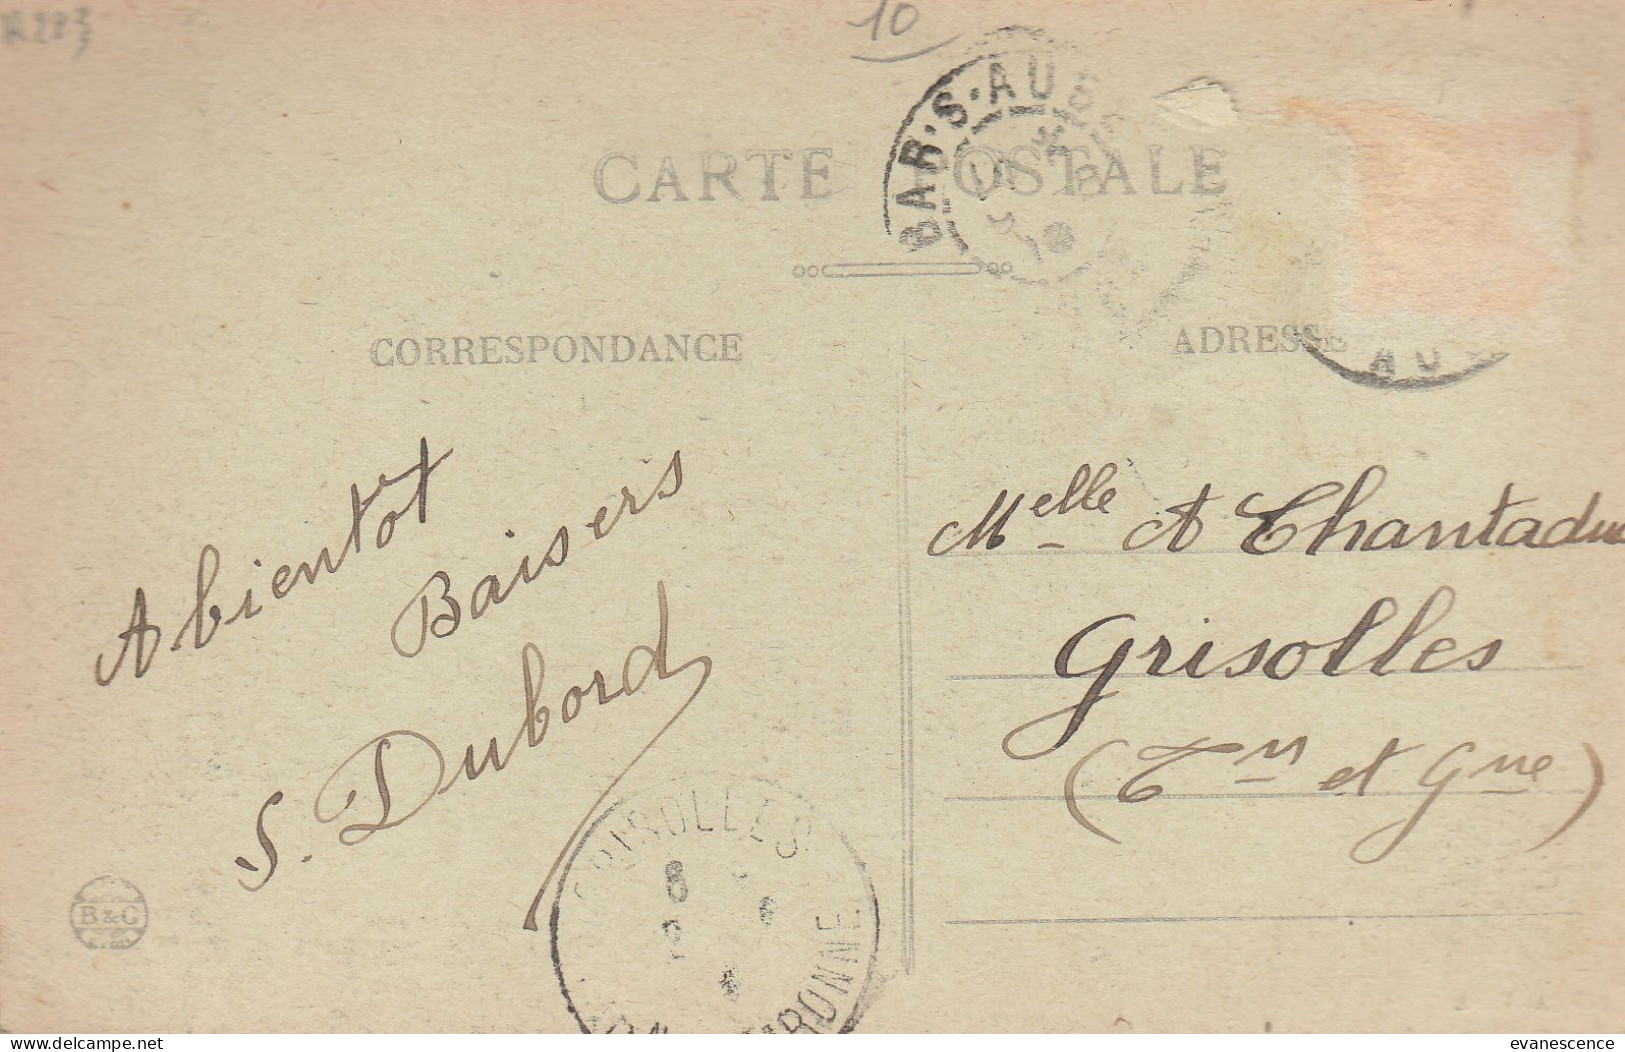 10
BAR-S-AUBE
CARTE POSTALE
CORRESPONDANCE
ADRESSE
A bientot
Baisers
S. Dubord
Melle A Chantadu
Grisolles
(Tn et Gne)
GRISOLLES
8
RONNE
B & G
evanescence